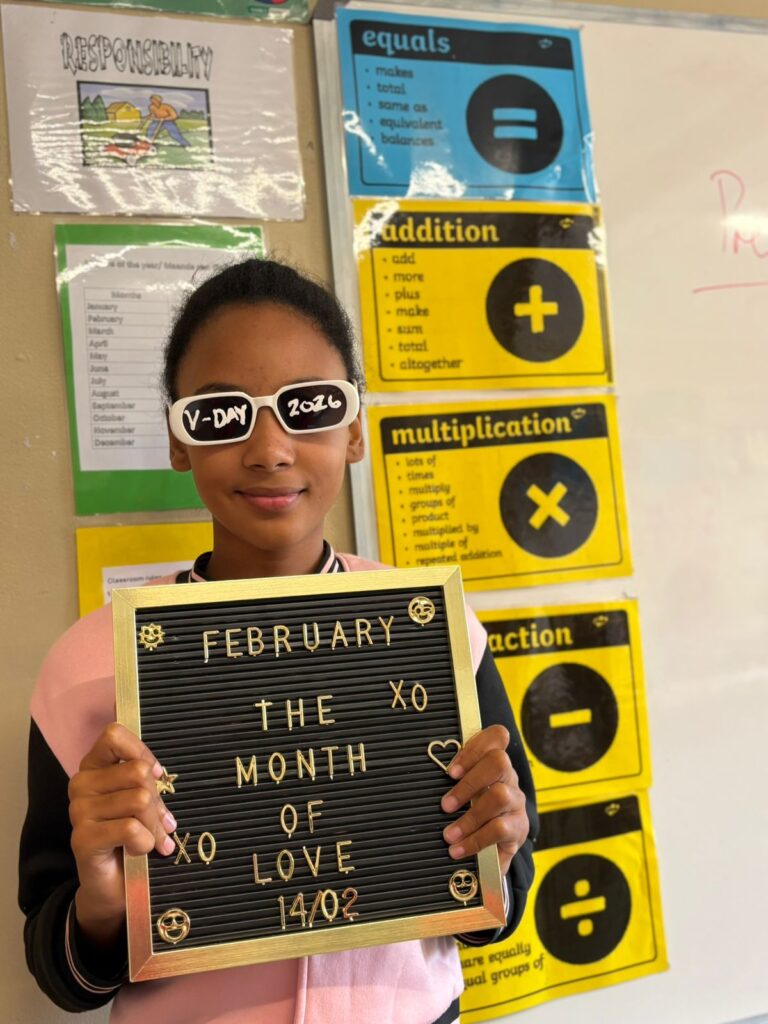 RESPONSIBILITY
equals
• makes
• total
• same as
• equivalent
• balances
addition
• add
• more
• plus
• make
• sum
• total
• altogether
multiplication
• lots of
• times
• multiply
• groups of
• product
• multiplied by
• multiple of
• repeated addition
action
are equally
ual groups of
of the year/
Months
January
February
March
April
May
June
July
August
September
October
November
December
Classroom rules
V-DAY 2026
FEBRUARY
THE XO
MONTH
OF
XO
LOVE
14/02